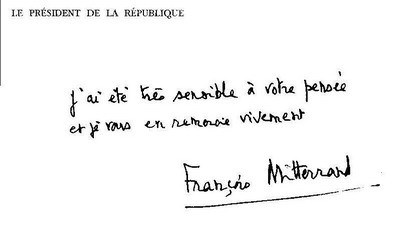 LE PRÉSIDENT DE LA RÉPUBLIQUE
j'ai été très sensible à votre pensée
et je vous en remercie vivement
François Mitterrand